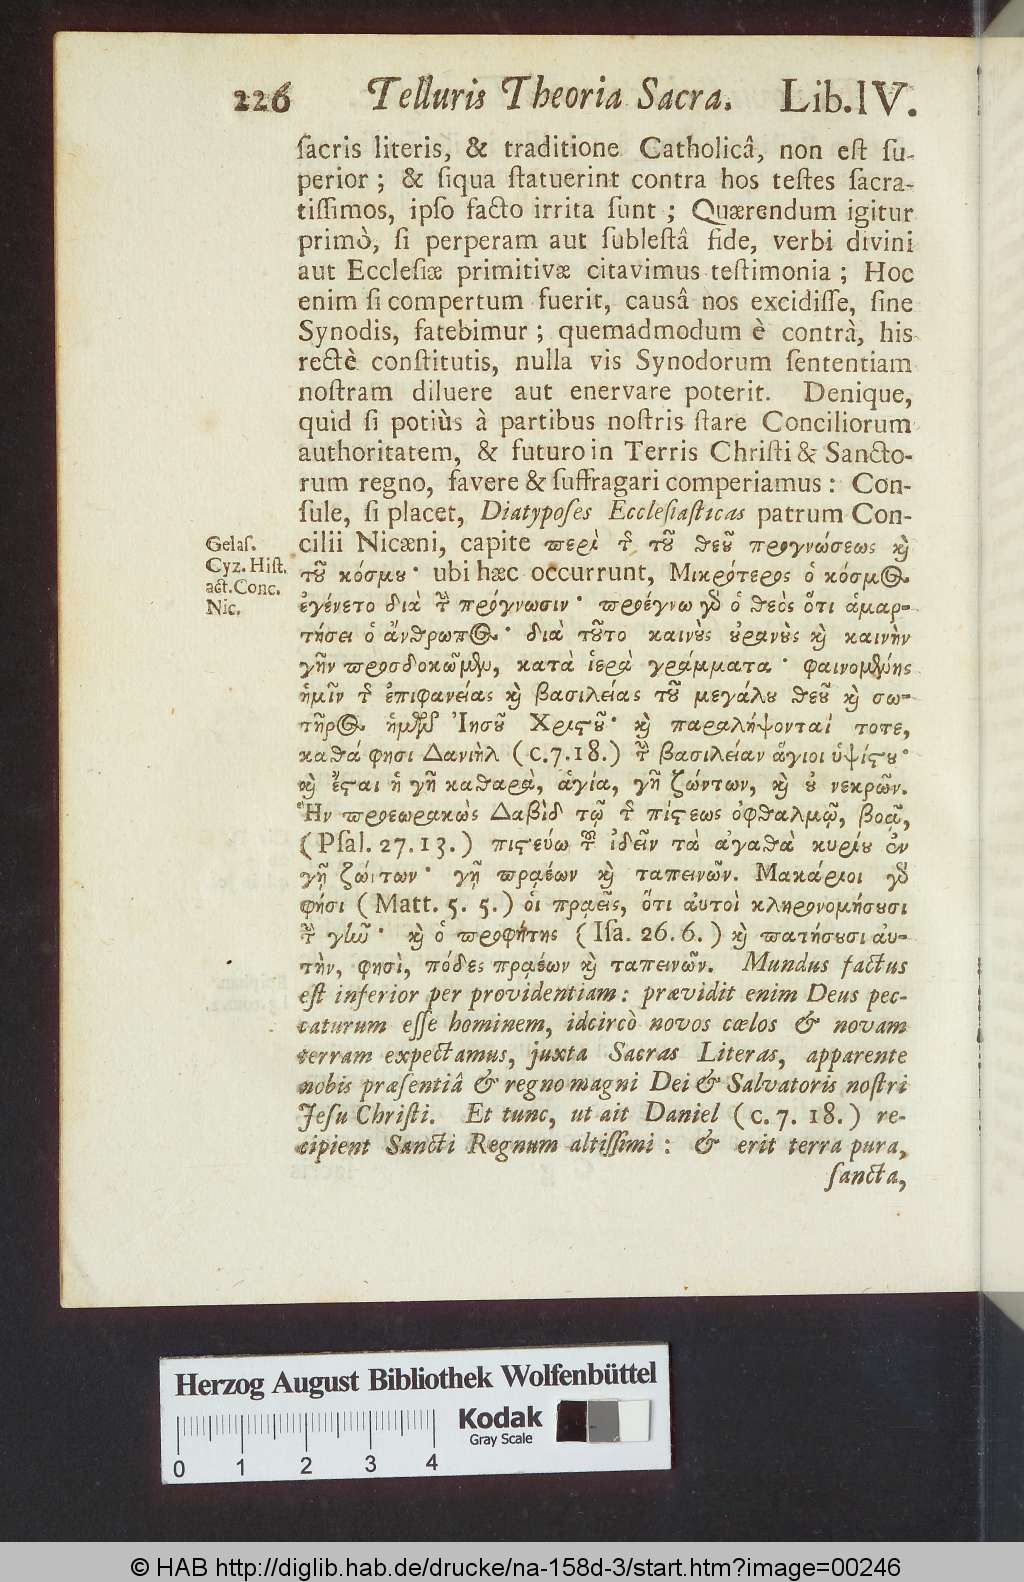 226 Telluris Theoria Sacra. Lib. IV.
sacris literis, & traditione Catholicâ, non est su-
perior ; & siqua statuerint contra hos testes sacra-
tissimos, ipso facto irrita sunt ; Quærendum igitur
primò, si perperam aut sublestâ fide, verbi divini
aut Ecclesiæ primitivæ citavimus testimonia ; Hoc
enim si compertum fuerit, causâ nos excidisse, sine
Synodis, fatebimur ; quemadmodum è contrà, his
rectè constitutis, nulla vis Synodorum sententiam
nostram diluere aut enervare poterit. Denique,
quid si potiùs à partibus nostris stare Conciliorum
authoritatem, & futuro in Terris Christi & Sancto-
rum regno, favere & suffragari comperiamus : Con-
sule, si placet, Diatyposes Ecclesiasticas patrum Con-
cilii Nicæni, capite περὶ τῆς τοῦ Θεοῦ προγνώσεως καὶ
τοῦ κόσμου· ubi hæc occurrunt, Μικρότερος ὁ κόσμος
ἐγένετο διὰ τὴν πρόγνωσιν· προέγνω γὰρ ὁ θεὸς ὅτι ἁμαρ-
τήσει ὁ ἄνθρωπος· διὰ τοῦτο καινοὺς οὐρανοὺς καὶ καινὴν
γῆν προσδοκῶμεν, κατὰ ἱερὰ γράμματα· φαινομένης
ἡμῖν τῆς ἐπιφανείας καὶ βασιλείας τοῦ μεγάλου θεοῦ καὶ σω-
τῆρος ἡμῶν Ἰησοῦ Χριστοῦ· καὶ παραλήψονταί τοτε,
καθά φησι Δανιὴλ (c.7.18.) τὴν βασιλείαν ἅγιοι ὑψίστου·
καὶ ἔσται ἡ γῆ καθαρὰ, ἁγία, γῆ ζώντων, καὶ οὐ νεκρῶν.
Ἣν προεωρακὼς Δαβὶδ τῷ τῆς πίστεως ὀφθαλμῷ, βοᾷ,
(Psal. 27. 13.) πιστεύω τοῦ ἰδεῖν τὰ ἀγαθὰ κυρίου ἐν
γῇ ζώντων· γῇ πραέων καὶ ταπεινῶν. Μακάριοι γὰρ
φησι (Matt. 5. 5.) οἱ πραεῖς, ὅτι αὐτοὶ κληρονομήσουσι
τὴν γῆν· καὶ ὁ προφήτης (Isa. 26. 6.) καὶ πατήσουσι αὐ-
τὴν, φησὶ, πόδες πραέων καὶ ταπεινῶν. Mundus factus
est inferior per providentiam: prævidit enim Deus pec-
caturum esse hominem, idcircò novos cœlos & novam
terram expectamus, juxta Sacras Literas, apparente
nobis præsentiâ & regno magni Dei & Salvatoris nostri
Jesu Christi. Et tunc, ut ait Daniel (c. 7. 18.) re-
cipient Sancti Regnum altissimi : & erit terra pura,
sancta,
Gelas.
Cyz. Hist.
act. Conc.
Nic.
Herzog August Bibliothek Wolfenbüttel
Kodak
Gray Scale
0 1 2 3 4
© HAB http://diglib.hab.de/drucke/na-158d-3/start.htm?image=00246